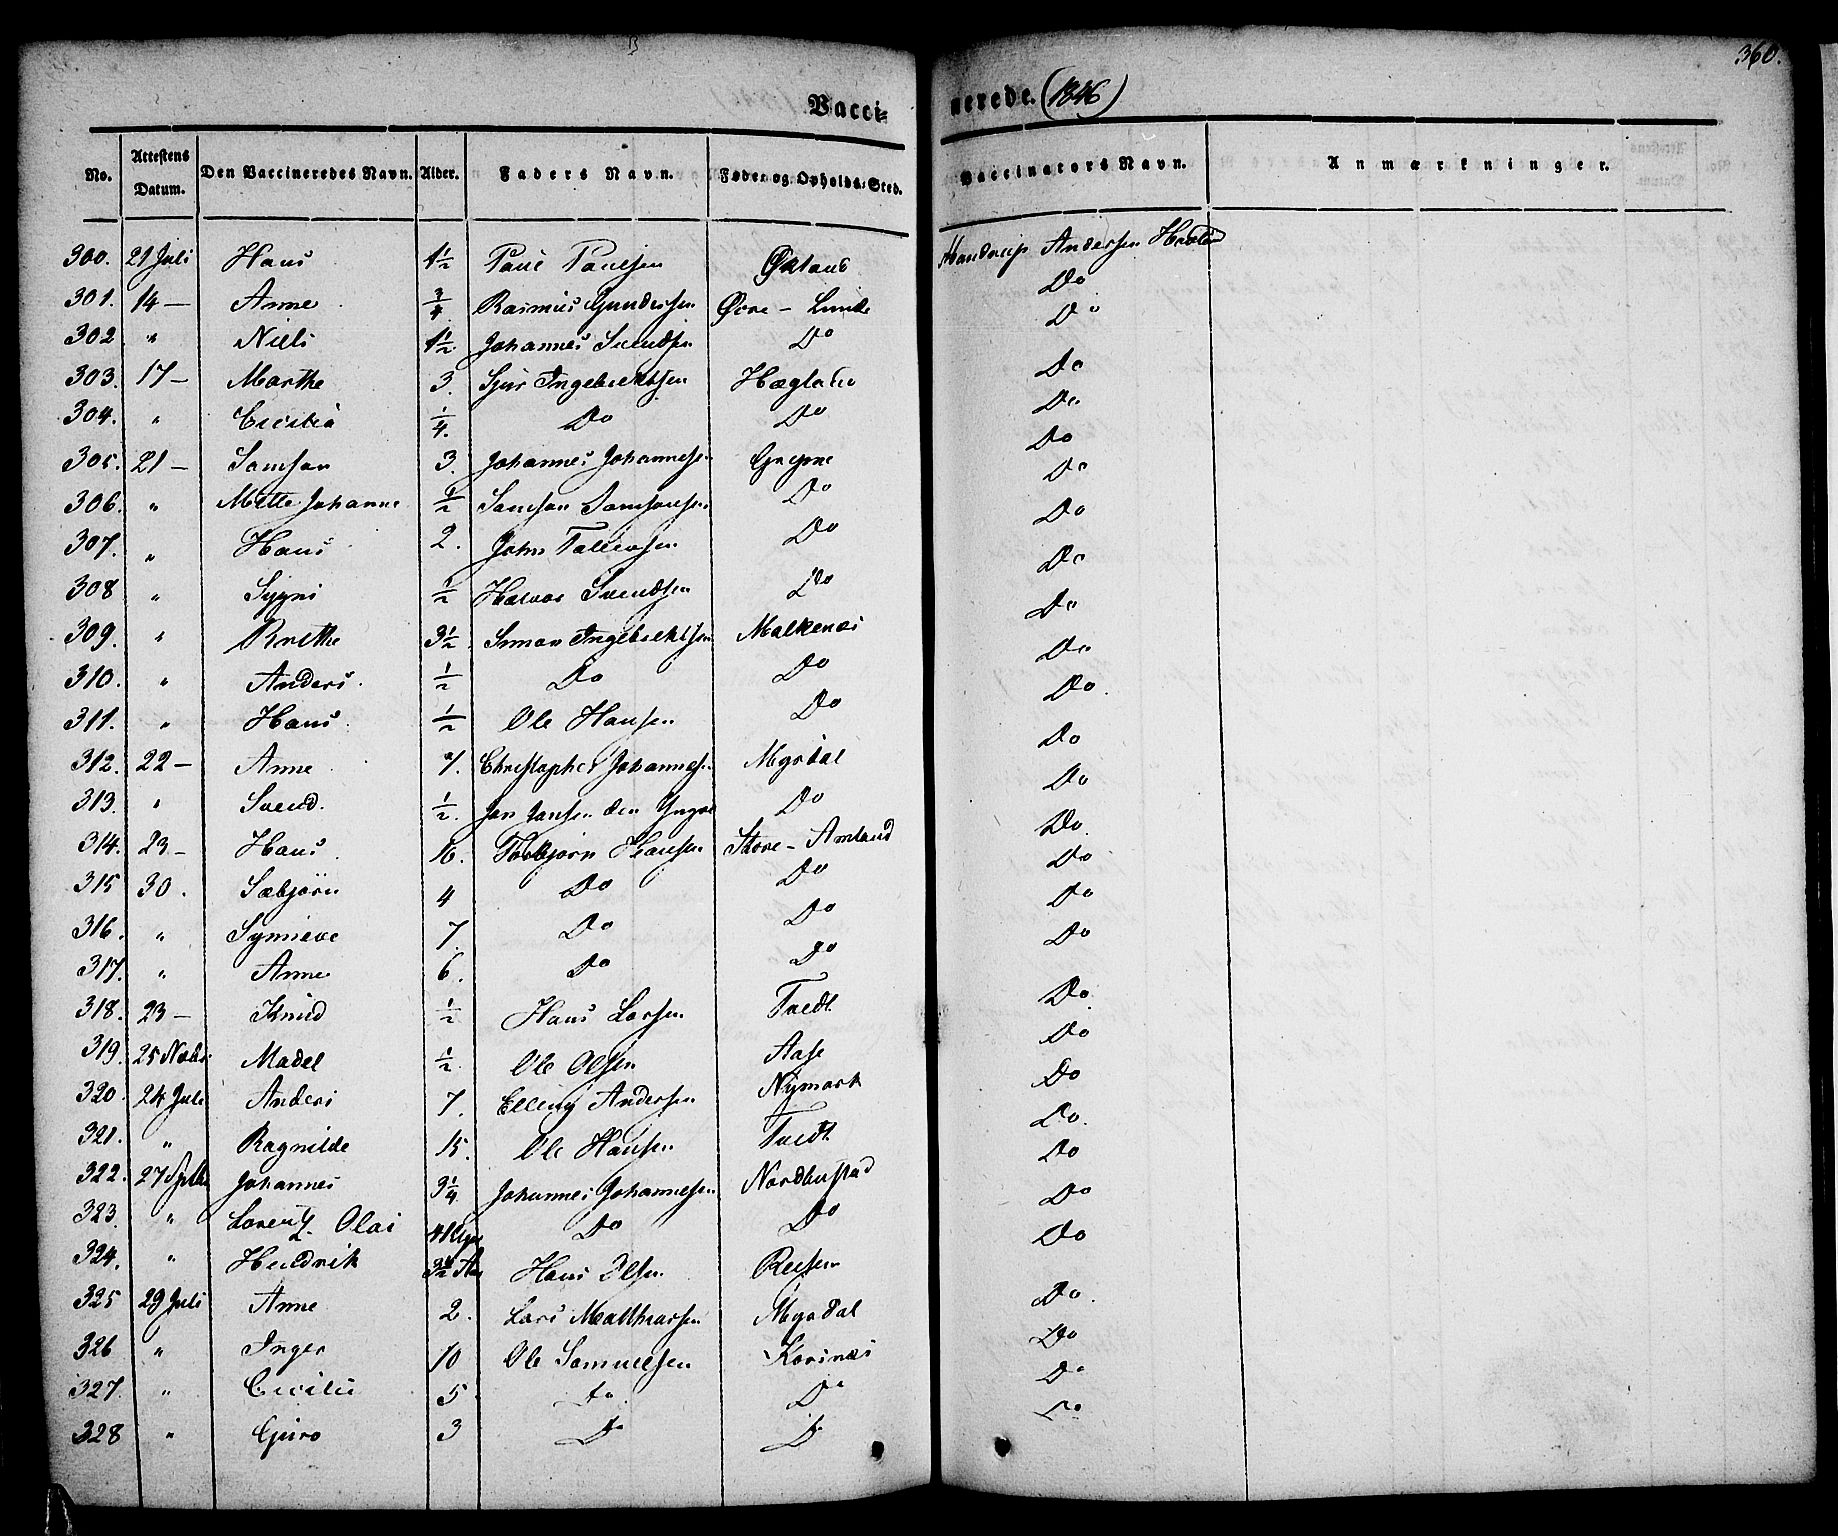 360.
Vacci=nerede. (1846)
No. | Attestens Datum. | Den Vaccineredes Navn. | Alder. | Faders Navn. | Føde= og Opholds=Sted. | Vaccinators Navn. | Anmærkninger.
300. 21 Juli Hans 1½ Poul Poulsen Økland Mandrup Andersen
301. 14 — Anne ¾ Rasmus Gundersen Øvre - Lunde Do
302 " Niels 1½ Johannes Svendsen Do Do
303. 17 — Marthe 3. Sjur Ingebrektsen Hægland Do
304. " Cecilia ¼. Do Do Do
305. 21 — Samson 3. Johannes Johannesen Do
306. " Mette Johanne ½ Samson Samsonsen Do Do
307. " Hans 2. John Do Do
308 " Sygni ½ Halvor Svendsen Do Do
309. " Brethe 3½ Simon Ingebrektsen Malkenes Do
310. " Anders. ½ Do Do Do
311. " Hans ½ Ole Hansen Do Do.
312. 22 — Anne 7. Christopher Johannesen Mysdal Do
313. " Svend. ½. Jon Jonsen den Yngre Do Do
314. 23 — Hans 16. Torbjørn Hansen Store - Amland Do.
315 30. Sæbjørn 4 Do Do Do
316. " Synneve 7. Do Do Do
317. " Anne 6. Do Do Do
318. 23 — Knud ½ Hans Larsen Tvedt Do
319. 25 Novbr Madel ½. Ole Olsen Aase Do
320. 24 Juli Anders 7. Elling Andersen Nymark Do
321. " Ragnilde 15. Ole Hansen Tvedt Do.
322. 27 Septbr Johannes 3¼. Johannes Johannesen Nordhustad Do
323. " Lorentz Olai Do Do Do
324. " Hendrik 3½ Aar Hans Olsen Do
325 29 Juli Anne 2. Lars Matthiassen Mysdal Do.
326 " Inger 10 Ole Samuelsen Korsnæs Do
327. " Cecilie 5 Do. Do Do
328 " Guro 3 Do Do Do